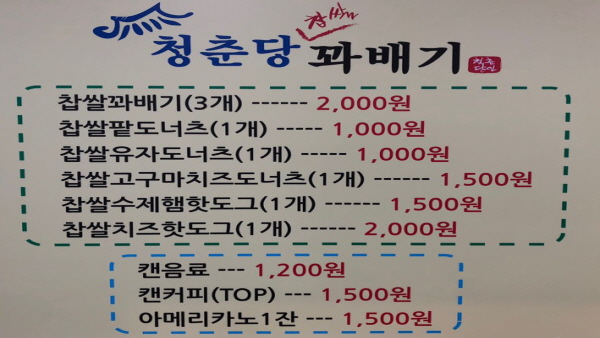 찹쌀
청춘당 꽈배기
찹쌀꽈배기(3개) ------ 2,000원
찹쌀팥도너츠(1개) ----- 1,000원
찹쌀유자도너츠(1개) ----- 1,000원
찹쌀고구마치즈도너츠(1개) ------ 1,500원
찹쌀수제햄핫도그(1개) ------ 1,500원
찹쌀치즈핫도그(1개) ------ 2,000원
캔음료 --- 1,200원
캔커피(TOP) --- 1,500원
아메리카노1잔 --- 1,500원